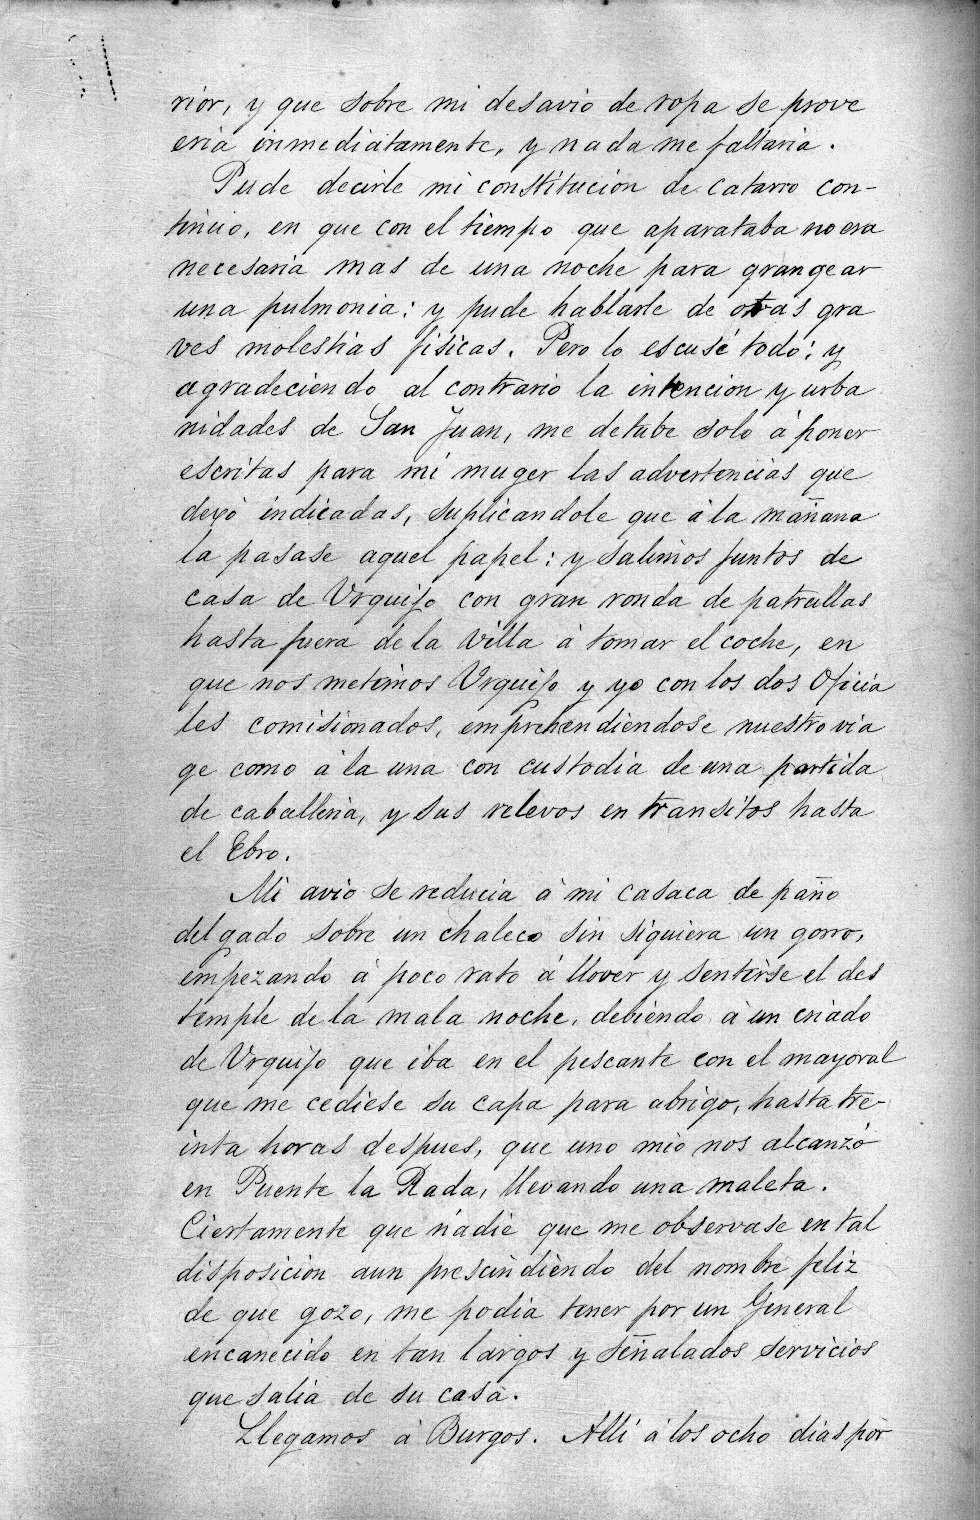 rior, y que sobre mi desavio de ropa se prove
eria inmediatamente, y nada me faltaria.
Pude decirle mi constitucion de catarro con-
tinuo, en que con el tiempo que aparataba no era
necesaria mas de una noche para grangear
una pulmonia: y pude hablarle de otras gra
ves molestias fisicas. Pero lo escusé todo: y
agradeciendo al contrario la intencion y urba
nidades de San Juan, me detube solo á poner
escritas para mi muger las advertencias que
dejo indicadas, suplicandole que á la mañana
la pasase aquel papel: y salimos juntos de
casa de Urquijo con gran ronda de patrullas
hasta fuera de la villa á tomar el coche, en
que nos metimos Urquijo y yo con los dos Oficia
les comisionados, emprehendiendose nuestro via
ge como á la una con custodia de una partida
de caballeria, y sus relevos en transitos hasta
el Ebro.
Mi avio se reducia á mi casaca de paño
delgado sobre un chaleco sin siquiera un gorro,
empezando á poco rato á llover y sentirse el des
temple de la mala noche, debiendo á un criado
de Urquijo que iba en el pescante con el mayoral
que me cediese su capa para abrigo, hasta tre-
inta horas despues, que uno mio nos alcanzó
en Puente la Rada, llevando una maleta.
Ciertamente que nadie que me observase en tal
disposicion aun prescindiendo del nombre feliz
de que gozo, me podia tener por un General
encanecido en tan largos y señalados servicios
que salia de su casa.
Llegamos á Burgos. Alli á los ocho dias por